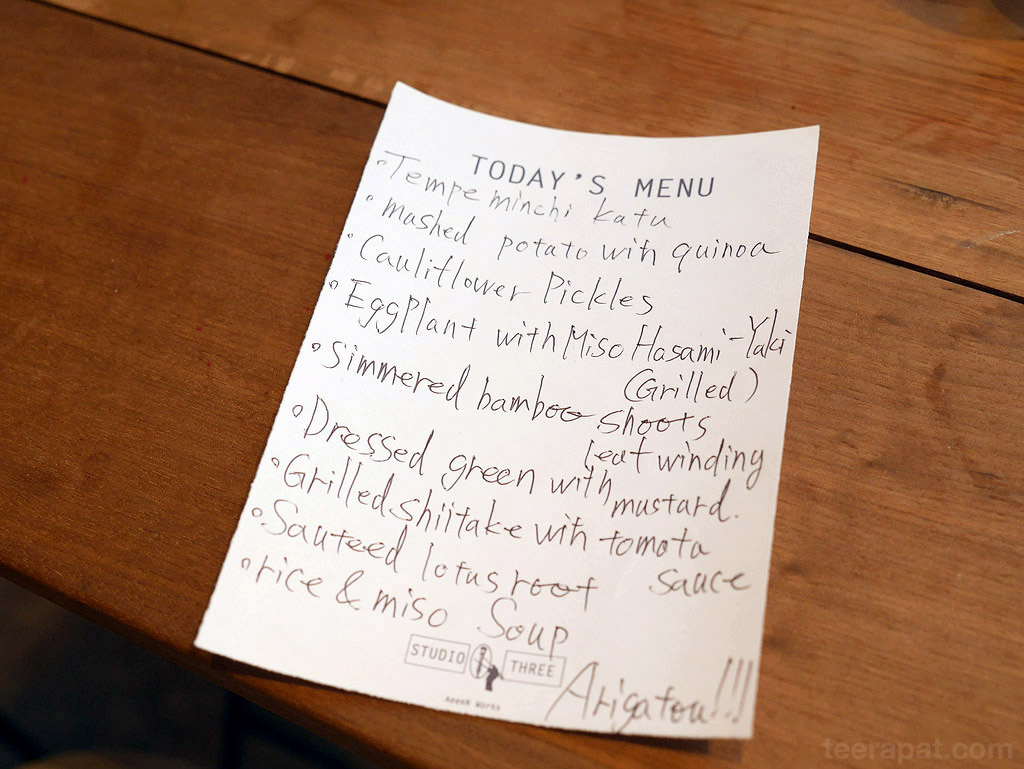 TODAY'S MENU
• Tempe minchi katu
• mashed potato with quinoa
• Cauliflower Pickles
• EggPlant with Miso Hasami-Yaki
(Grilled)
• Simmered bamboo shoots
leaf winding
• Dressed green with mustard.
• Grilled shiitake with tomato
sauce
• Sauteed lotus root
• rice & miso Soup
STUDIO THREE
Arigatou!!!
teerapat.com